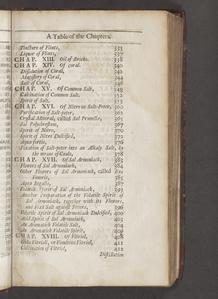 A Table of the Chapters.
Tincture of Flints, 335
Liquor of Flints, 337
CHAP. XIII. Oil of Bricks. 338
CHAP. XIV. Of Coral. 340
Dissolution of Coral, 342
Magistery of Coral, 344
Salt of Coral, 346
CHAP. XV. Of Common Salt, 349
Calcination of Common Salt, 352
Spirit of Salt, 353
CHAP. XVI. Of Nitre or Salt-Peter,
Purification of Salt-peter, 362
Crystal Mineral, called Sal Prunellæ, 365
Sal Polychrestum, 367
Spirit of Nitre, 370
Spirit of Nitre Dulcified, 372
Aqua fortis, 376
Fixation of Salt-peter into an Alkaly Salt, by
the means of Coals, 378
CHAP. XVII. Of Sal Armoniack, 382
Flowers of Sal Armoniack, 384
Other Flowers of Sal Armoniack, called Ens
Veneris, 385
Aqua Regalis, 387
Volatile Spirit of Sal Armoniack,
Another Preparation of the Volatile Spirit of
Sal Armoniack, together with its Flowers,
and Fixt Salt against Fevers, 396
Volatile Spirit of Sal Armoniack Dulcified, 400
Acid Spirit of Sal Armoniack,
An Aromatick Volatile Salt, 404
An Aromatick Volatile Spirit, 409
CHAP. XVIII. Of Vitriol, 408
Gilla Vitrioli, or Vomitive Vitriol, 411
Calcination of Vitriol, 412
Distillation